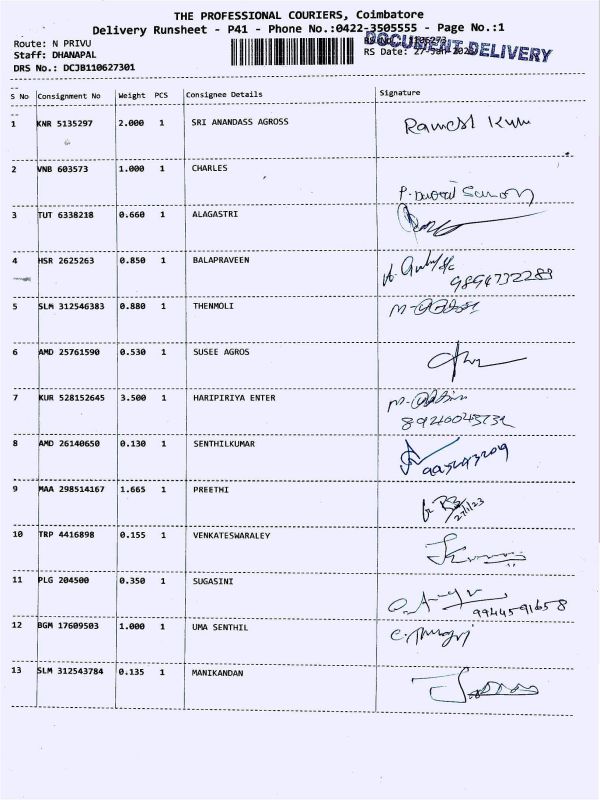 THE PROFESSIONAL COURIERS, Coimbatore
Delivery Runsheet - P41 - Phone No.:0422-3505555 - Page No.:1
Route: N PRIVU
DOCUMENT DELIVERY
Staff: DHANAPAL
RS Date: 27-Jan-2023
DRS No.: DCJB110627301
S No Consignment No Weight PCS Consignee Details Signature
1 KNR 5135297 2.000 1 SRI ANANDASS AGROSS Ramesh Kum
2 VNB 603573 1.000 1 CHARLES
3 TUT 6338218 0.660 1 ALAGASTRI
4 HSR 2625263 0.850 1 BALAPRAVEEN
9894732288
5 SLM 312546383 0.880 1 THENMOLI
6 AMD 25761590 0.530 1 SUSEE AGROS
7 KUR 528152645 3.500 1 HARIPIRIYA ENTER
8 AMD 26140650 0.130 1 SENTHILKUMAR
9 MAA 298514167 1.665 1 PREETHI
27/1/23
10 TRP 4416898 0.155 1 VENKATESWARALEY
11 PLG 204500 0.350 1 SUGASINI
9944591658
12 BGM 17609503 1.000 1 UMA SENTHIL
13 SLM 312543784 0.135 1 MANIKANDAN